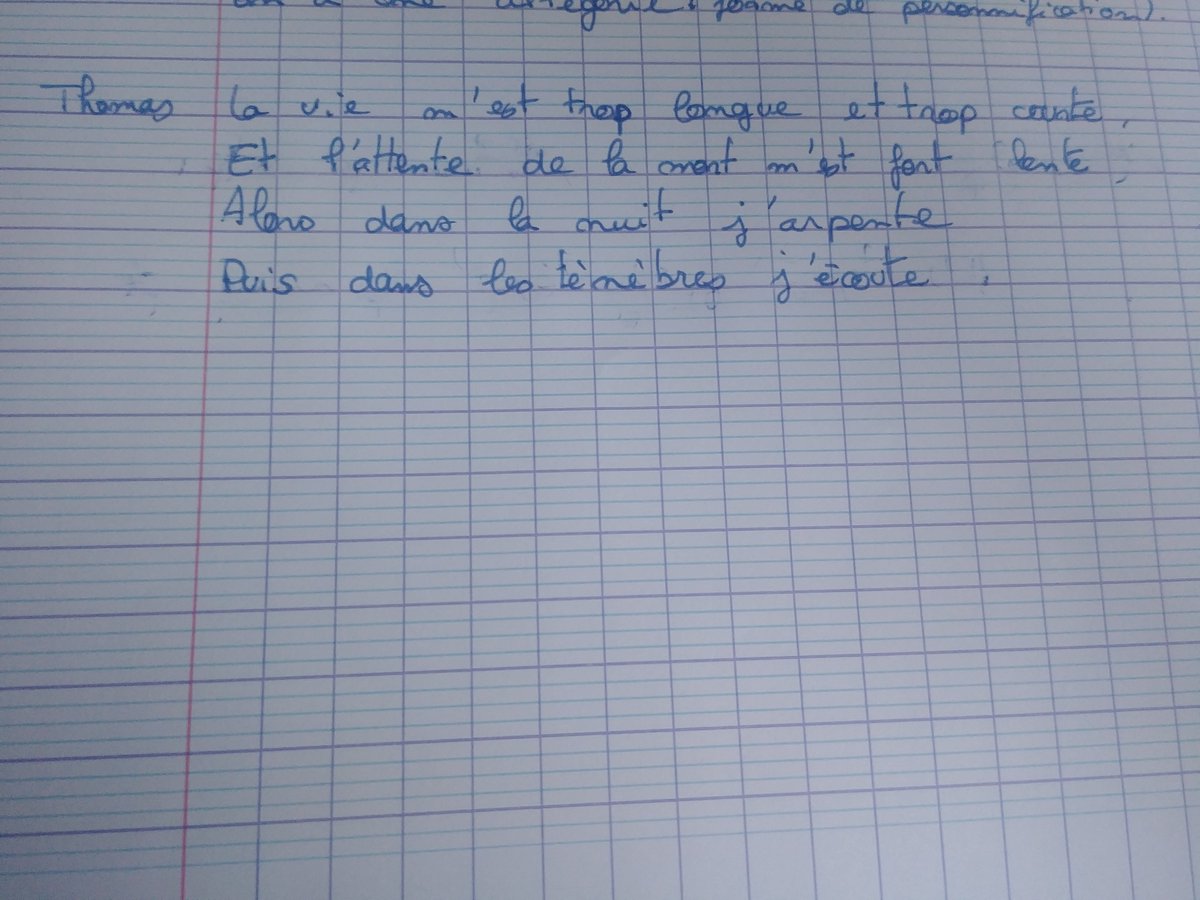 allégorie, forme de personnification).
Thomas La vie m'est trop longue et trop courte,
Et l'attente de la mort m'est fort lente,
Alors dans la nuit j'arpente
Puis dans les ténèbres j'écoute.